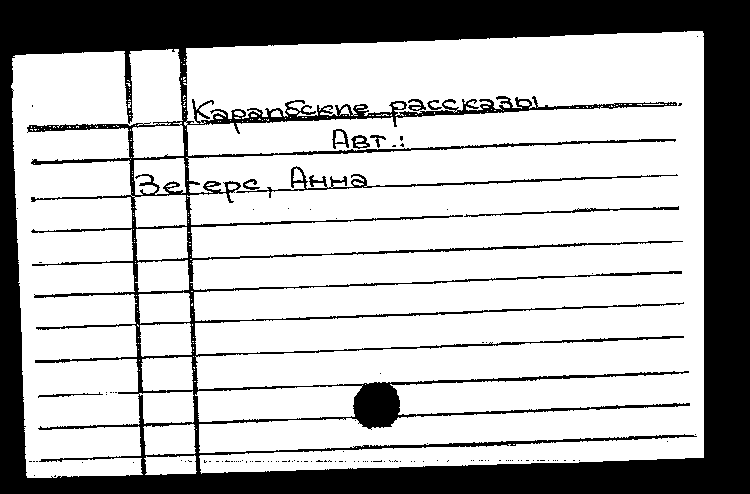 Карибские рассказы.
Авт.:
Зегерс, Анна